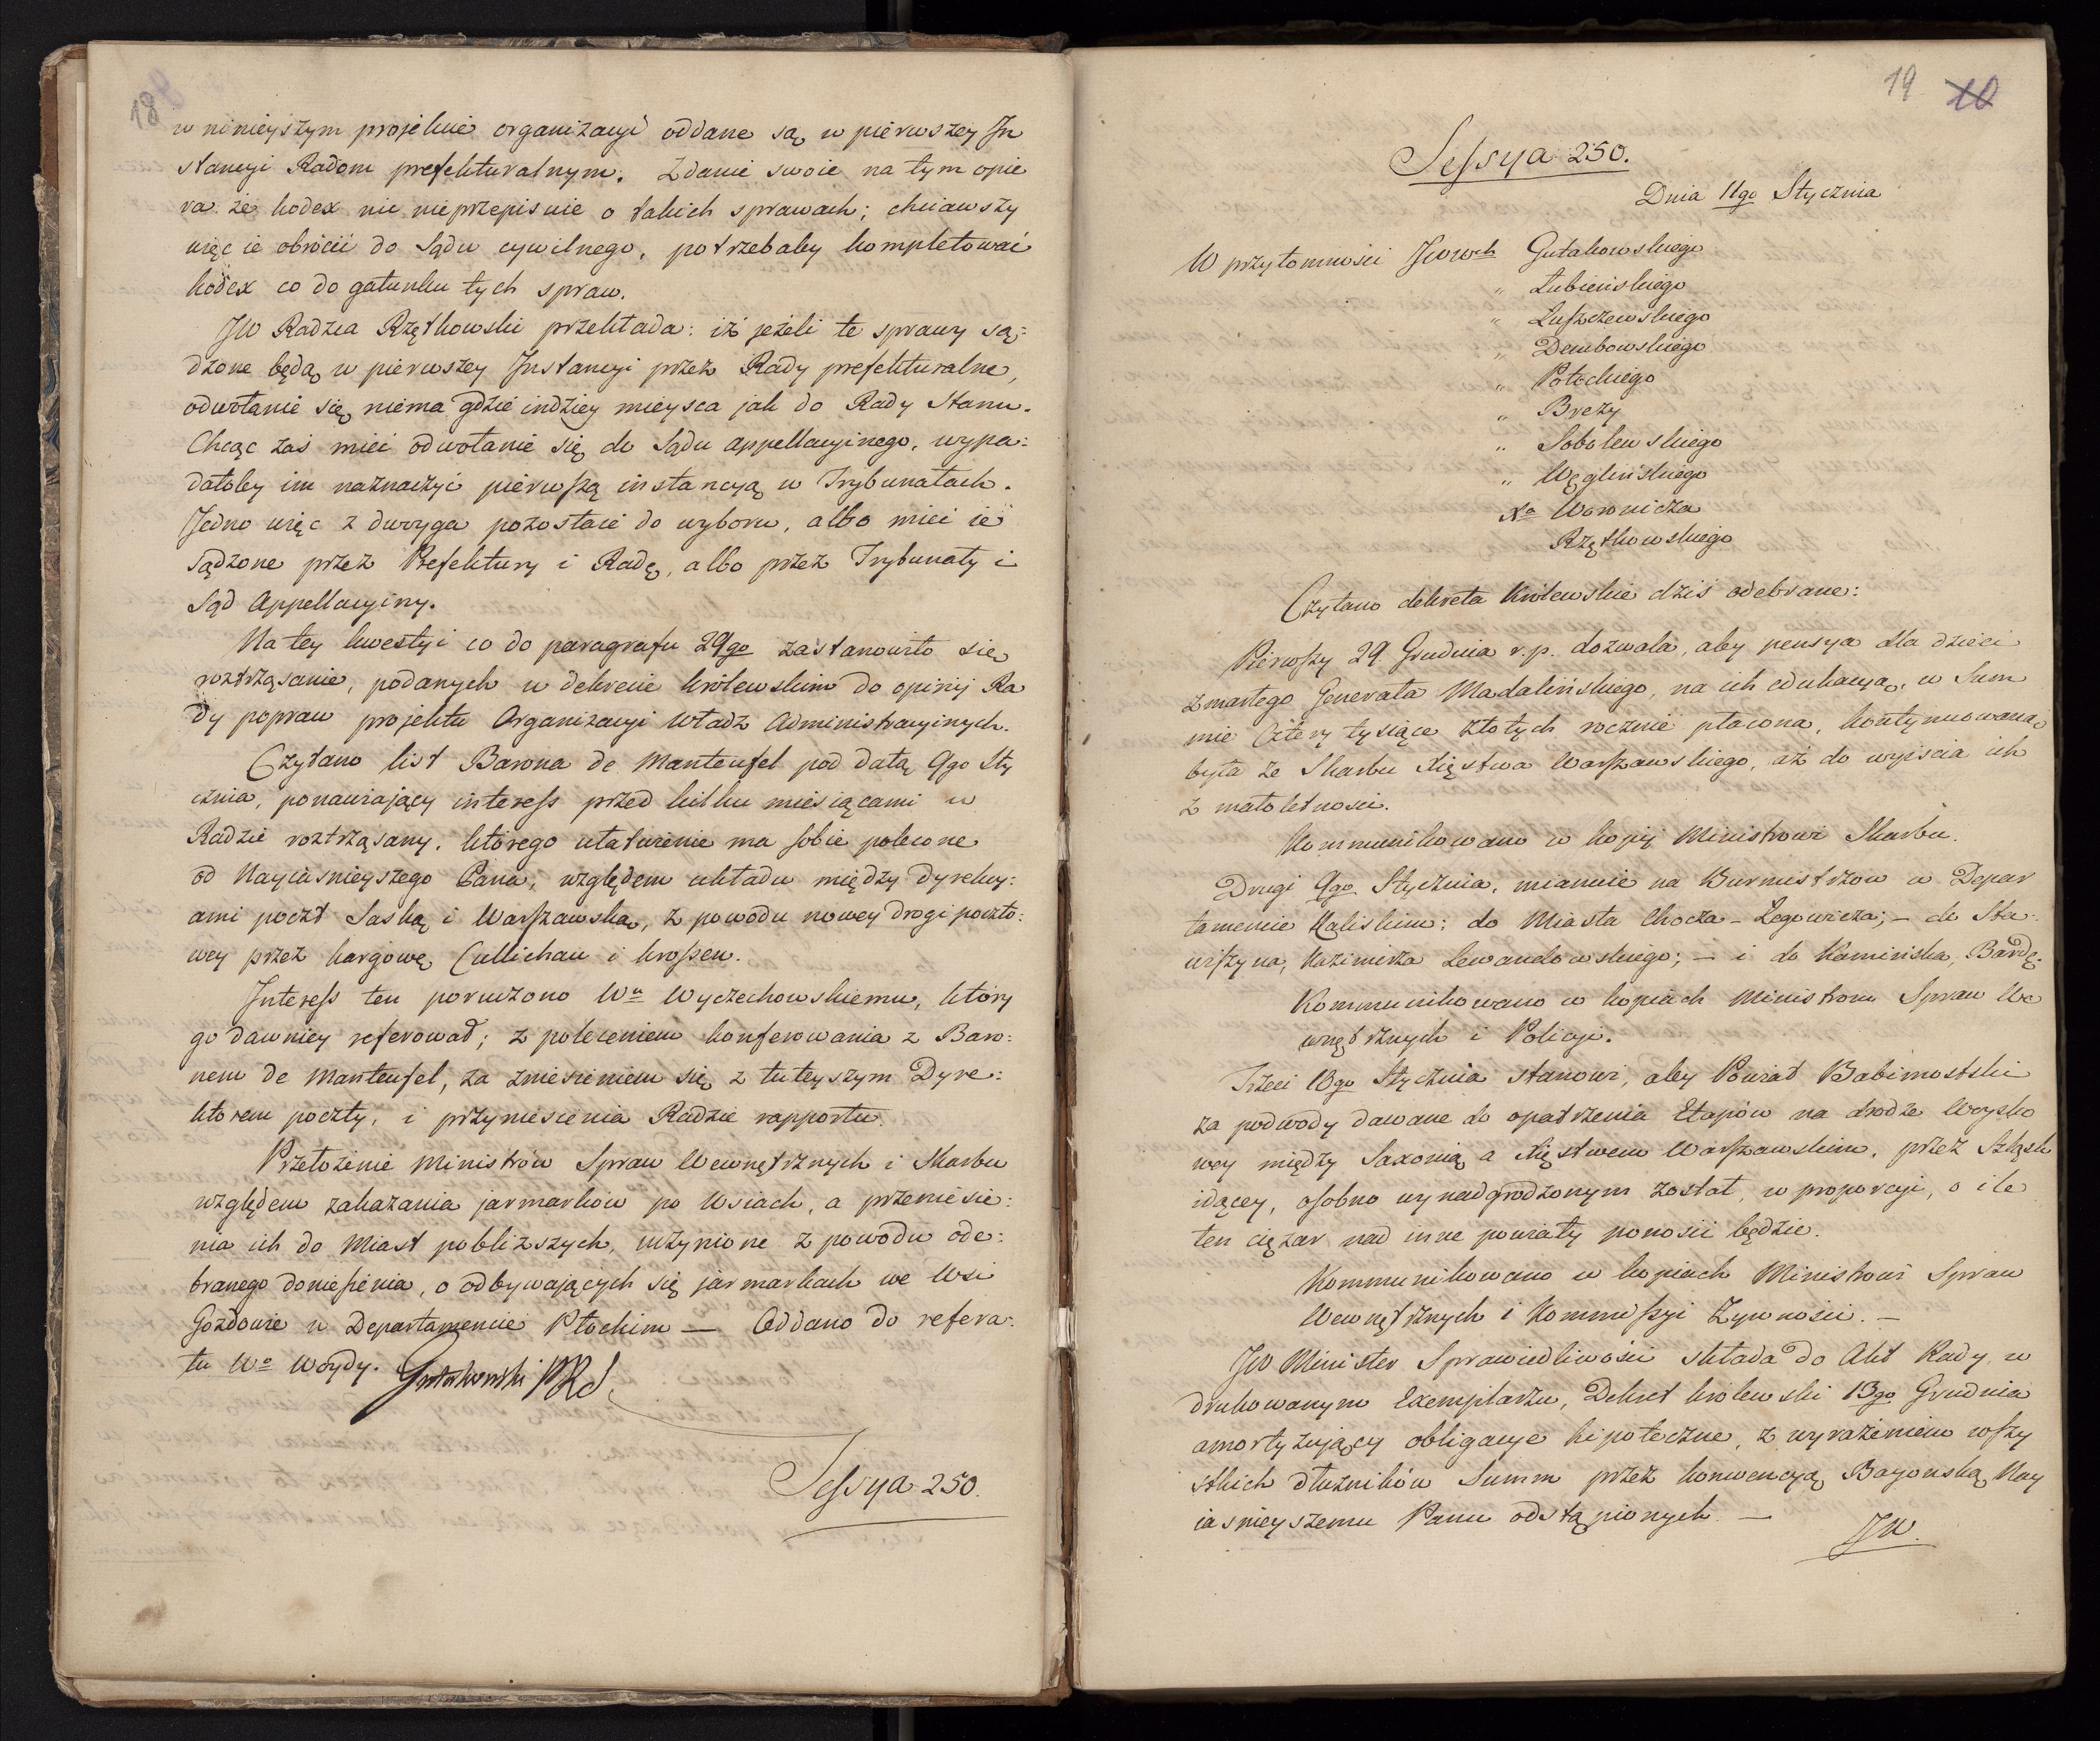 18
w ninieyszym projekcie organizacyi oddane są w pierwszey In
stancyi Radom prefekturalnym. Zdanie swoie na tym opie
ra że kodex nic nieprzepisuie o takich sprawach; chciawszy
więc ie obrócić do Sądu cywilnego, potrzebaby kompletować
kodex co do gatunku tych spraw.
JW Radzca Rzętkowski przekłada: iż jeżeli te sprawy są:
dzone będą w pierwszey Instancyi przez Rady prefekturalne,
odwołanie się niema gdzie indziey mieysca jak do Rady Stanu.
Chcąc zaś mieć odwołanie się do Sądu appellacyinego, wypa:
dałoby im naznaczyć pierwszą instancyą w Trybunałach.
Jedno więc z dwoyga pozostaie do wyboru, albo mieć ie
sądzone przez Prefektury i Radę, albo przez Trybunały i
Sąd Appellacyiny.
Na tey kwestyi co do paragrafu 29go zastanowiło się
roztrząsanie, podanych w dekrecie królewskim do opinij Ra
dy popraw projektu Organizacyi Władz Administracyinych.
Czytano list Barona de Manteufel pod datą 9go Sty
cznia, ponawiający interess przed kilku miesiącami w
Radzie roztrząsany, którego ułatwienie ma sobie polecone
od Nayiasnieyszego Pana, względem układu między dyrekcy:
ami poczt Saską i Warszawską, z powodu nowey drogi poczto:
wey przez kargowę Cullichau i krossen.
Interess ten poruczono Wu Wyczechowskiemu, który
go dawniey referował; z poleceniem konferowania z Baro:
nem de Manteufel, za zniesieniem się z tuteyszym Dyre:
ktorem poczty, i przyniesienia Radzie rapportu.
Przełożenie Ministrów Spraw Wewnętrznych i Skarbu
względem zakazania jarmarków po Wsiach, a przeniesie:
nia ich do Miast pobliższych, uczynione z powodu ode:
branego doniesienia, o odbywających się jarmarkach we Wsi
Gozdowie w Departamencie Płockim — Oddano do refera:
tu Wo Woydy. Gutakowski PRS
Sessya 250.
19 10
Sessya 250.
Dnia 11go Stycznia
W przytomności JWWch Gutakowskiego
" Łubieńskiego
" Łuszczewskiego
" Dembowskiego
" Potockiego
" Brezy
" Sobolewskiego
" Węglińskiego
Xa Woronicza
Rzętkowskiego
Czytano dekreta Królewskie dziś odebrane:
Pierwszy 29 Grudnia r.p. dozwala, aby pensya dla dzieci
zmarłego Generała Madalińskiego, na ich edukacyą, w Sum
mie Cztery tysiące złotych rocznie płacona, kontynuowaną
była ze Skarbu Xięstwa Warszawskiego, aż do wyiścia ich
z małoletności.
Kommunikowano w kopij Ministrowi Skarbu.
Drugi 9go Stycznia, mianuie na Burmistrzów w Depar
tamencie Kaliskim: do Miasta Chocza - Zegowicza; - do Sta:
wiszyna, Kazimierza Lewandowskiego; - i do Kaminska, Bardę.
Kommunikowano w kopiach Ministrom Spraw We
wnętrznych i Policyi.
Trzeci 10go Stycznia stanowi, aby Powiat Babimostski
za podwody dawane do opatrzenia Etapów na drodze Woysko
wey między Saxonią a Xięstwem Warszawskim, przez Szląsk
idącey, osobno wynadgrodzonym został, w proporcyi, o ile
ten ciężar nad inne powiaty ponosić będzie.
Kommunikowano w kopiach Ministrowi Spraw
Wewnętrznych i Kommissyi Żywności. —
JW Minister Sprawiedliwości składa do Akt Rady, w
drukowanym Exemplarzu, Dekret królewski 13go Grudnia
amortyzujący obligacye hipoteczne, z wyrażeniem wszy
stkich dłużników Summ przez konwencyą Bayonską Nay
iasnieyszemu Panu odstąpionych. —
JW.